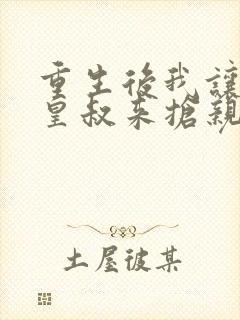 重生後我讓
皇叔來搶親
土屋彼某